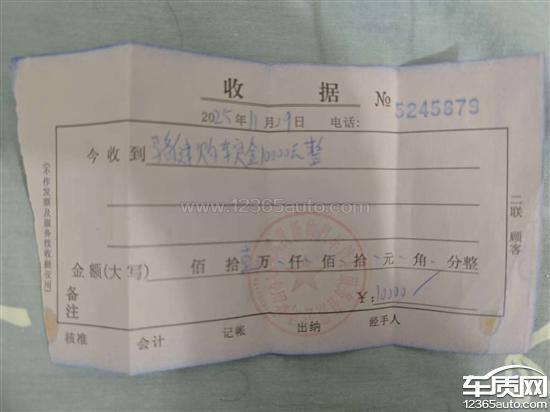 收 据 № 5245879
2025年11月29日 电话:
今收到 购车定金10000元整
www.12365auto.com
金额(大写) 佰 拾 壹 万 仟 佰 拾 元 角 分整
备注
¥:10000
核准 会计 记帐 出纳 经手人
(不作发票及服务性收据使用)
二联 顾客
车质网
12365auto.com